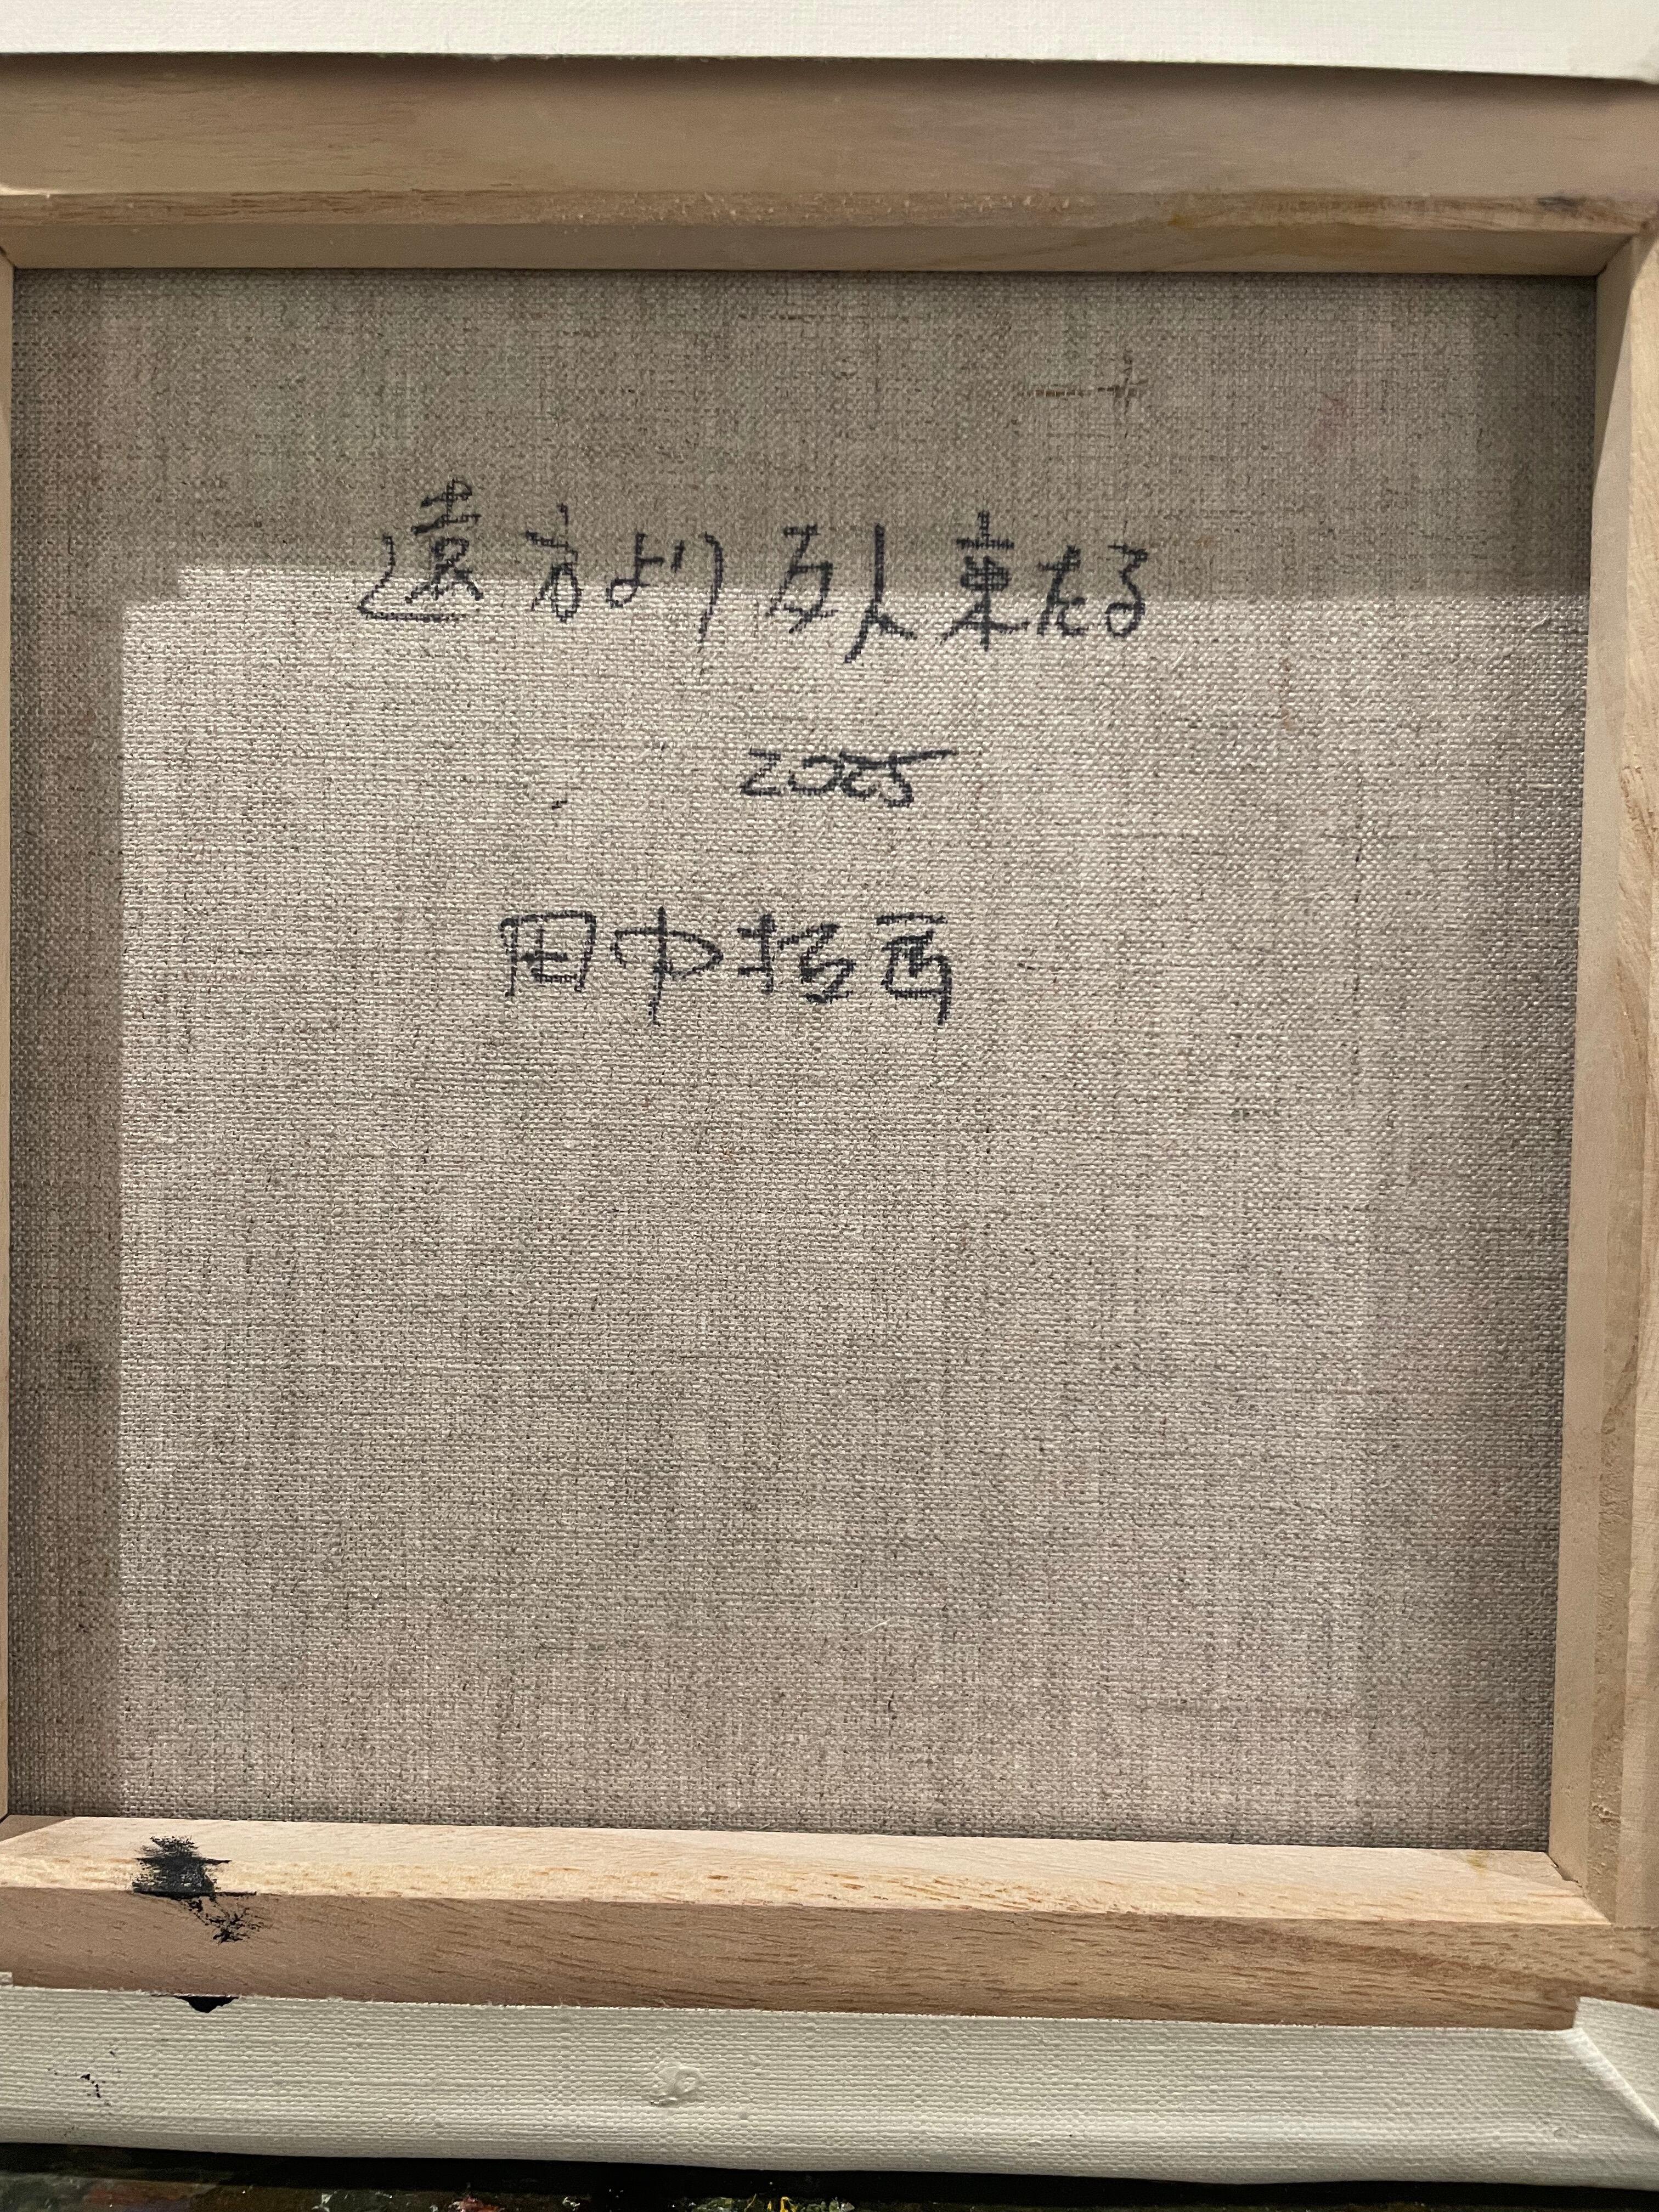 遠方より友人来たる
2025
田中拓馬